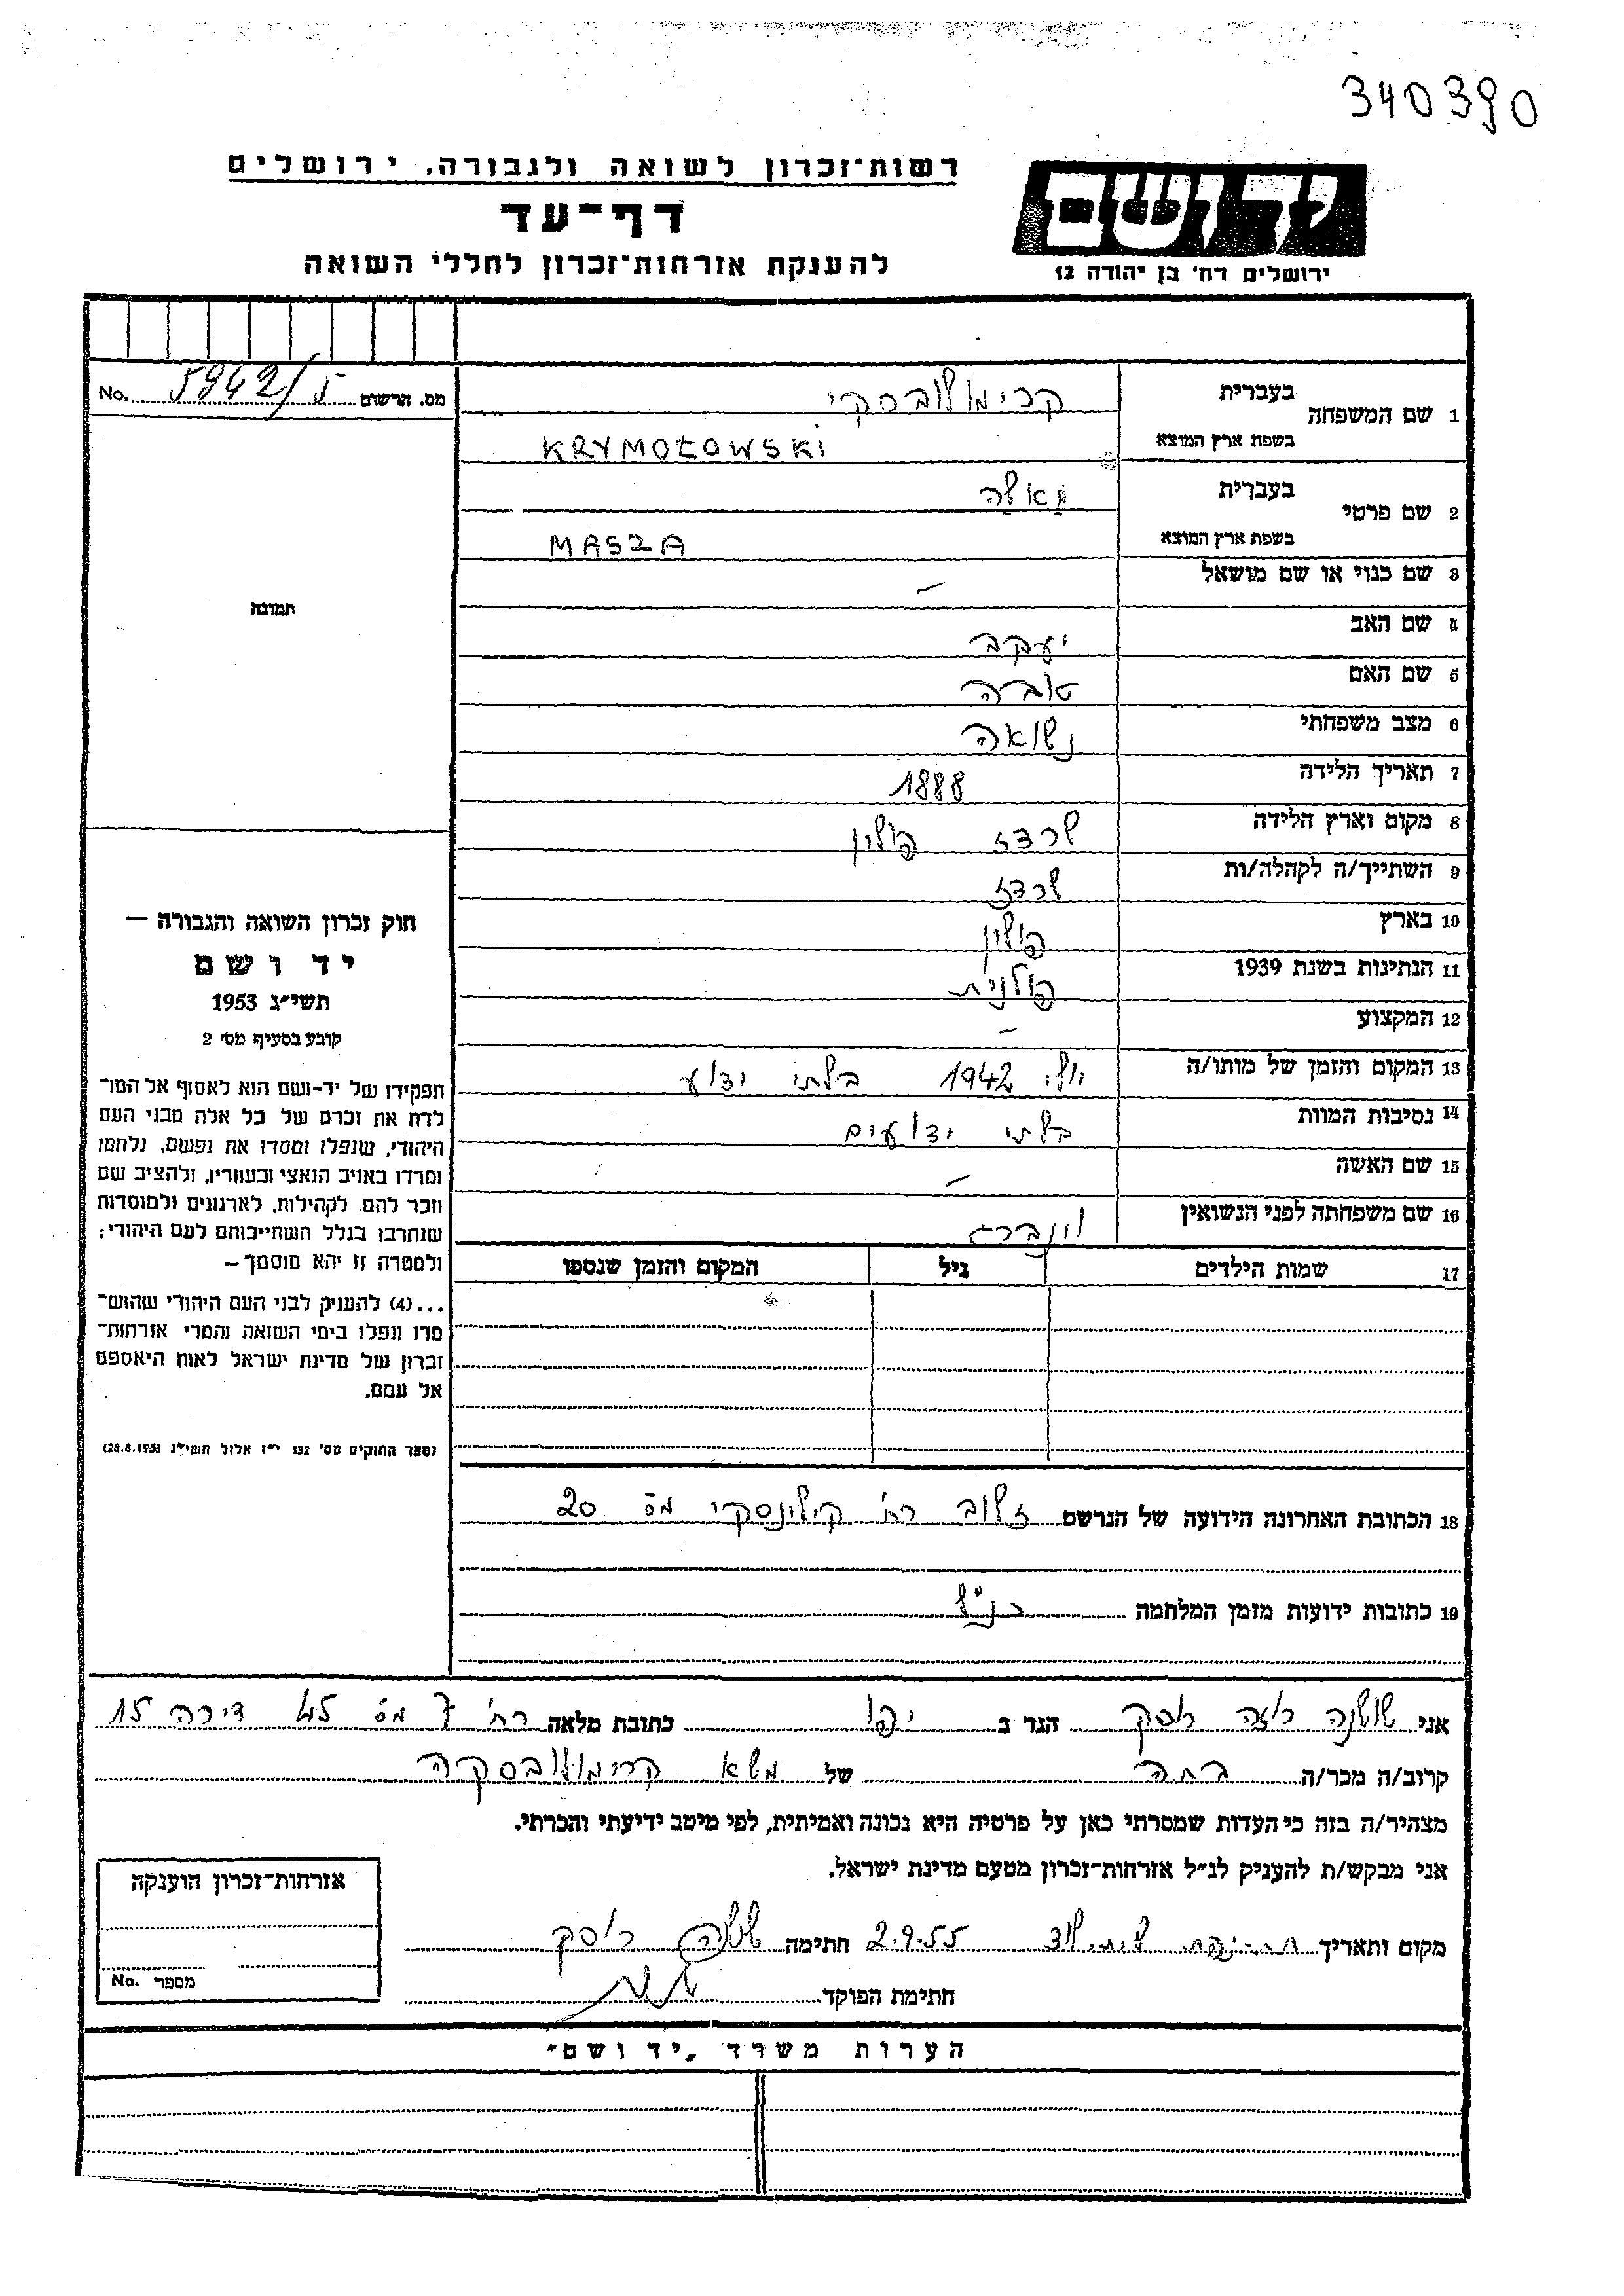 340390
רשות־זכרון לשואה ולגבורה, ירושלים
דף־עד
להענקת אזרחות־זכרון לחללי השואה
יד ושם
ירושלים רח' בן יהודה 12
No. 5942/5 מס. הרשום
תמונה
חוק זכרון השואה והגבורה —
יד ושם
תשי״ג 1953
קובע בסעיף מס' 2
תפקידו של יד-ושם הוא לאסוף אל המו־
לדת את זכרם של כל אלה מבני העם
היהודי, שנפלו ומסרו את נפשם, נלחמו
ומרדו באויב הנאצי ובעוזריו, ולהציב שם
וזכר להם, לקהילות, לארגונים ולמוסדות
שנחרבו בגלל השתייכותם לעם היהודי;
ולמטרה זו יהא מוסמך —
...(4) להעניק לבני העם היהודי שהוש־
מדו ונפלו בימי השואה והמרי אזרחות־
זכרון של מדינת ישראל לאות היאספם
אל עמם.
(ספר החוקים מס' 132 י״ז אלול תשי״ג 28.8.1953)
1 שם המשפחה בעברית קרימולובסקי
בשפת ארץ המוצא KRYMOŁOWSKI
2 שם פרטי בעברית מאשה
בשפת ארץ המוצא MASZA
3 שם כנוי או שם מושאל –
4 שם האב יעקב
5 שם האם טובה
6 מצב משפחתי נשואה
7 תאריך הלידה 1888
8 מקום וארץ הלידה שרדז פולין
9 השתייך/ה לקהלה/ות שרדז
10 בארץ פולין
11 הנתינות בשנת 1939 פולנית
12 המקצוע –
13 המקום והזמן של מותו/ה יולי 1942 בלתי ידוע
14 נסיבות המוות בלתי ידועים
15 שם האשה –
16 שם משפחתה לפני הנשואין וינברג
17 שמות הילדים גיל המקום והזמן שנספו
18 הכתובת האחרונה הידועה של הנרשם זלוב רח' קילינסקי מס 20
19 כתובות ידועות מזמן המלחמה כנ״ל
אני שושנה רוזה רוסק הגר ב יפו כתובת מלאה רח' 7 מס 45 דירה 15
קרוב/ה מכר/ה בתה של משא קרימולובסקה
מצהיר/ה בזה כי העדות שמסרתי כאן על פרטיה היא נכונה ואמיתית, לפי מיטב ידיעתי והכרתי.
אני מבקש/ת להעניק לנ״ל אזרחות־זכרון מטעם מדינת ישראל.
מקום ותאריך 2.9.55 חתימה שושנה רוסק
חתימת הפוקד
אזרחות־זכרון הוענקה
מספר No.
הערות משרד „יד ושם״